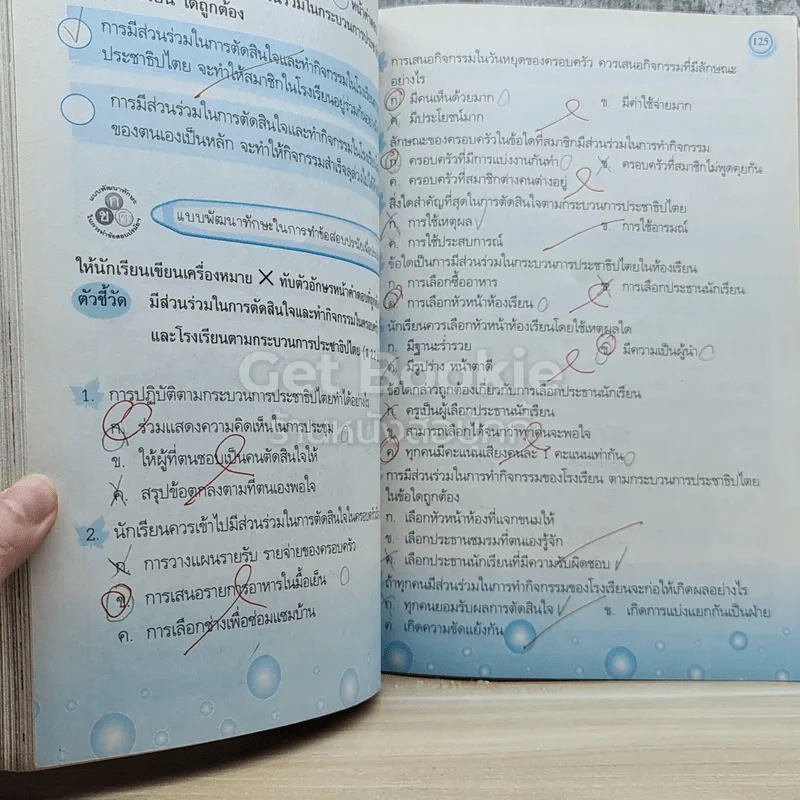 ได้ถูกต้อง
การมีส่วนร่วมในการตัดสินใจและทำกิจกรรมในโรงเรียน
ประชาธิปไตย จะทำให้สมาชิกในโรงเรียนอยู่ร่วมกันอย่าง
การมีส่วนร่วมในการตัดสินใจและทำกิจกรรมในโรงเรียน
ของตนเองเป็นหลัก จะทำให้กิจกรรมสำเร็จลุล่วง
แบบพัฒนาทักษะ
ก
ข
ค
ในการทำข้อสอบปรนัย
แบบพัฒนาทักษะในการทำข้อสอบปรนัย
ให้นักเรียนเขียนเครื่องหมาย X ทับตัวอักษรหน้าคำตอบ
ตัวชี้วัด มีส่วนร่วมในการตัดสินใจและทำกิจกรรมในครอบครัว
และโรงเรียนตามกระบวนการประชาธิปไตย
1. การปฏิบัติตามกระบวนการประชาธิปไตยทำได้อย่างไร
ก. ร่วมแสดงความคิดเห็นในการประชุม
ข. ให้ผู้ที่ตนชอบเป็นคนตัดสินใจให้
ค. สรุปข้อตกลงตามที่ตนเองพอใจ
2. นักเรียนควรเข้าไปมีส่วนร่วมในการตัดสินใจในครอบครัว
ก. การวางแผนรายรับ รายจ่ายของครอบครัว
ข. การเสนอรายการอาหารในมื้อเย็น
ค. การเลือกช่างเพื่อซ่อมแซมบ้าน
125
การเสนอกิจกรรมในวันหยุดของครอบครัว ควรเสนอกิจกรรมที่มีลักษณะ
อย่างไร
ก. มีคนเห็นด้วยมาก ข. มีค่าใช้จ่ายมาก
ค. มีประโยชน์มาก
ลักษณะของครอบครัวในข้อใดที่สมาชิกมีส่วนร่วมในการทำกิจกรรม
ก. ครอบครัวที่มีการแบ่งงานกันทำ ข. ครอบครัวที่สมาชิกไม่พูดคุยกัน
ค. ครอบครัวที่สมาชิกต่างคนต่างอยู่
สิ่งใดสำคัญที่สุดในการตัดสินใจตามกระบวนการประชาธิปไตย
ก. การใช้เหตุผล ข. การใช้อารมณ์
ค. การใช้ประสบการณ์
ข้อใดเป็นการมีส่วนร่วมในกระบวนการประชาธิปไตยในห้องเรียน
ก. การเลือกซื้ออาหาร ข. การเลือกประธานนักเรียน
ค. การเลือกหัวหน้าห้องเรียน
นักเรียนควรเลือกหัวหน้าห้องเรียนโดยใช้เหตุผลใด
ก. มีฐานะร่ำรวย ข. มีความเป็นผู้นำ
ค. มีรูปร่าง หน้าตาดี
ข้อใดกล่าวถูกต้องเกี่ยวกับการเลือกประธานนักเรียน
ก. ครูเป็นผู้เลือกประธานนักเรียน
ข. สามารถเลือกได้จนกว่าทุกคนจะพอใจ
ค. ทุกคนมีคะแนนเสียงคนละ 1 คะแนนเท่ากัน
การมีส่วนร่วมในการทำกิจกรรมของโรงเรียน ตามกระบวนการประชาธิปไตย
ในข้อใดถูกต้อง
ก. เลือกหัวหน้าห้องที่แจกขนมให้
ข. เลือกประธานชมรมที่ตนเองรู้จัก
ค. เลือกประธานนักเรียนที่มีความรับผิดชอบ
ถ้าทุกคนมีส่วนร่วมในการทำกิจกรรมของโรงเรียนจะก่อให้เกิดผลอย่างไร
ก. ทุกคนยอมรับผลการตัดสินใจ ข. เกิดการแบ่งแยกกันเป็นฝ่าย
ค. เกิดความขัดแย้งกัน
Get Bookie
ร้านหนังสือมือสอง